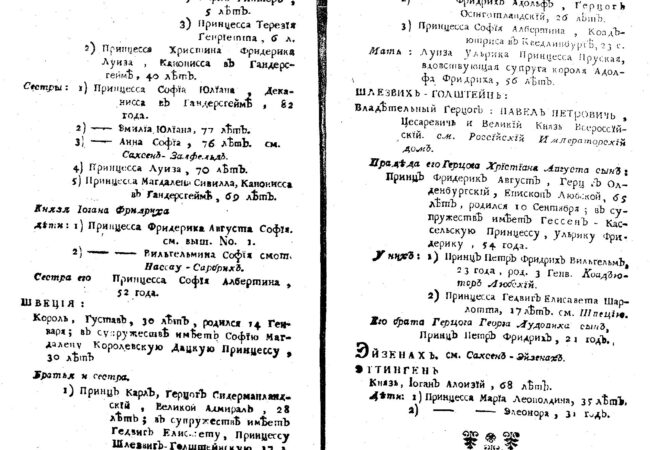 5 лѣтъ.
3) Принцесса Терезїя
Генрїетта, 6 л.
2) Принцесса Христина Фридерика
Луиза, Канонисса въ Гандерс-
геймѣ, 40 лѣтъ.
Сестры: 1) Принцесса Софїя Юлїана, Дека-
нисса въ Гандерсгеймѣ, 82
года.
2) — Эмилїа Юлїана, 77 лѣтъ.
3) — Анна Софїа, 76 лѣтъ. см.
Саксенъ-Залфельдъ.
4) Принцесса Луиза, 70 лѣтъ.
5) Принцесса Магдалена Сивилла, Канонисса
въ Гандерсгеймѣ, 69 лѣтъ.
Князя Іогана Фридриха
дѣти: 1) Принцесса Фридерика Августа Софїа.
см. выш. No. 1.
2) — Вильгельмина Софїа смот.
Нассау-Сарбрикъ.
Сестра его Принцесса Софїа Албертина,
52 года.
ШВЕЦІЯ:
Король, Густавъ, 30 лѣтъ, родился 14 Ген-
варя; въ супружествѣ имѣетъ Софїю Маг-
далену Королевскую Дацкую Принцессу,
30 лѣтъ
Братья и сестра.
1) Принцъ Карлъ, Герцогъ Сидерманланд-
скїй, Великой Адмиралъ, 28
лѣтъ; въ супружествѣ имѣетъ
Гедвигъ Елисавету, Принцессу
Шлезвигъ-Голштейнскую 17 л.
2) Фридрихъ Адольфъ, Герцогъ
Остготландскїй, 26 лѣтъ.
3) Принцесса Софїа Албертина, Коадъ-
юторисса въ Кведлинбургѣ, 23 г.
Мать: Луиза Ульрика Принцесса Пруская,
вдовствующая супруга короля Адол-
фа Фридриха, 56 лѣтъ.
ШЛЕЗВИХЪ-ГОЛШТЕЙНЪ:
Владѣтельный Герцогъ: ПАВЕЛЪ ПЕТРОВИЧЬ,
Цесаревичь и Великїй Князь Всероссїй-
скїй. см. Россїйскїй Императорскїй
домъ.
Прадѣда его Герцога Хрїстїана Августа сынъ:
Принцъ Фридерикъ Августъ, Герц. Ол-
денбургскїй, Епископъ Любской, 65
лѣтъ, родился 10 Сентября; въ су-
пружествѣ имѣетъ Гессенъ-Кас-
сельскую Принцессу, Ульрику Фри-
дерику, 54 года.
У нихъ: 1) Принцъ Петръ Фридрихъ Вильгельмъ,
23 года, род. 3 Генв. Коадъю-
торъ Любскїй.
2) Принцесса Гедвигъ Елисавета Шар-
лотта, 17 лѣтъ. см. Швецію.
Его брата Герцога Георга Лудовиха сынъ,
Принцъ Петръ Фридрихъ, 21 годъ.
ЭЙЗЕНАХЪ. см. Саксенъ-Эйзенахъ.
ЭТТИНГЕНЪ
Князь, Іоганъ Алоизїй, 68 лѣтъ.
Дѣти: 1) Принцесса Марїа Леополдина, 35 лѣтъ.
2) — — Элеонора, 31 годъ.